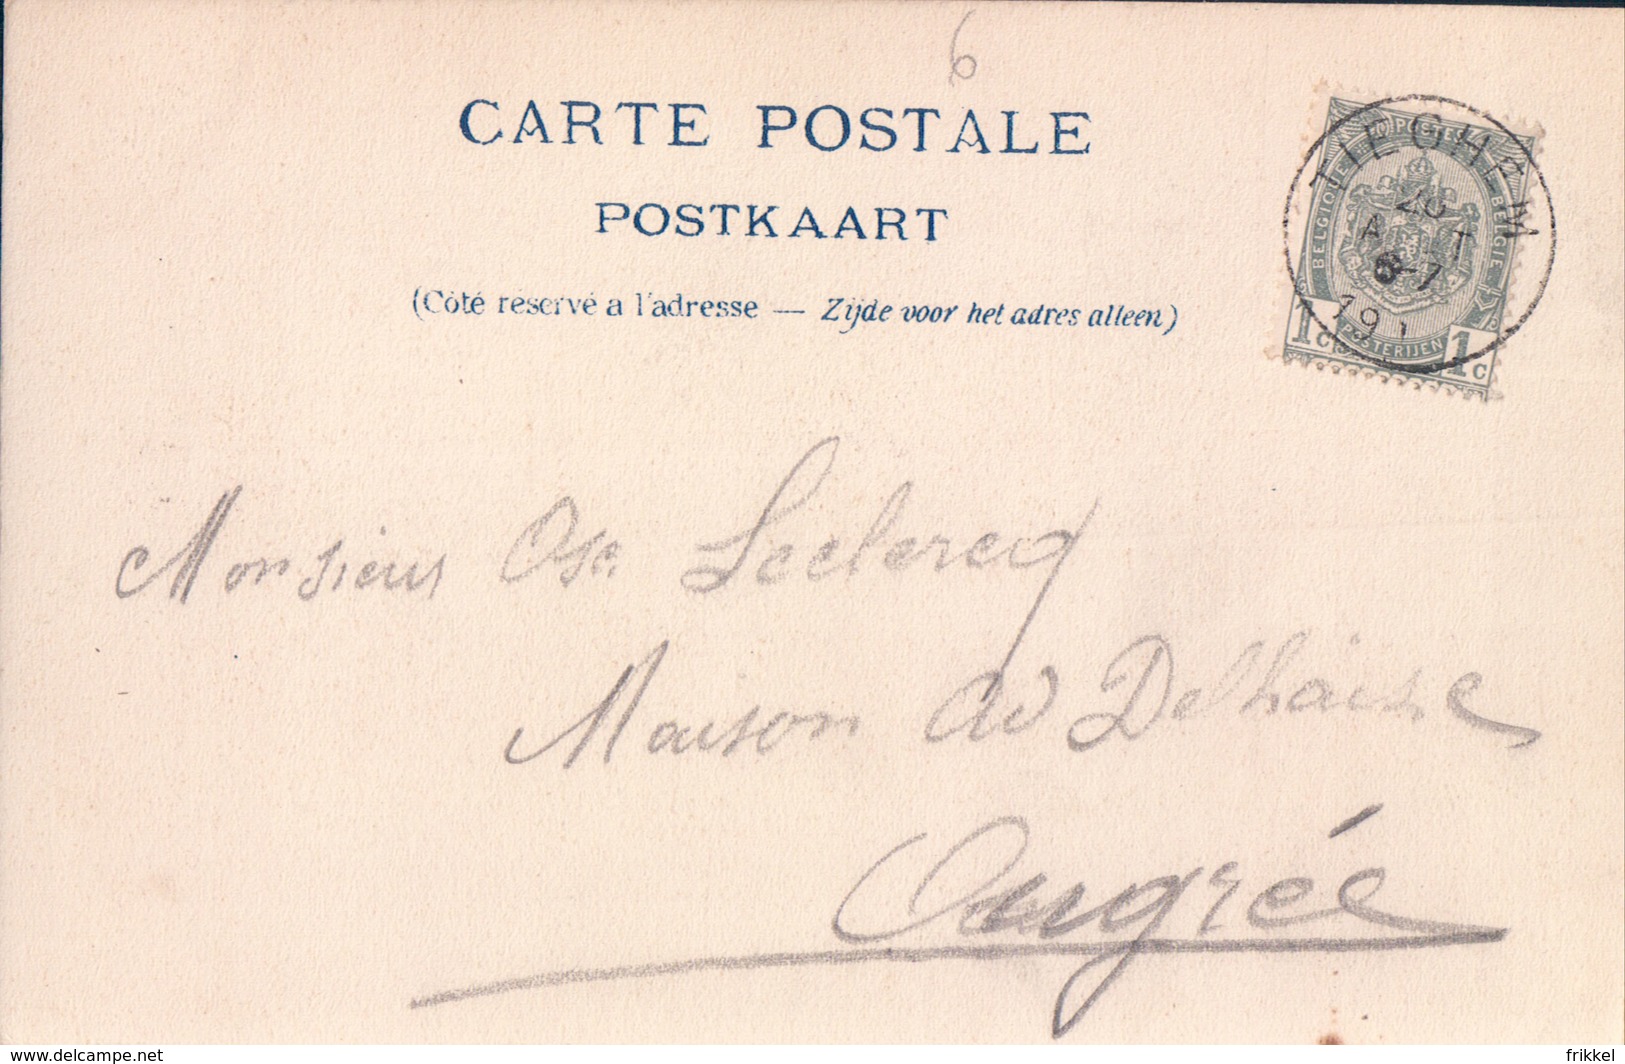 6
CARTE POSTALE
POSTKAART
(Côté réservé a l'adresse — Zijde voor het adres alleen)
TIEGHEM
20
A T
6-7
191
POSTES
BELGIQUE BELGIË
POSTERIJEN
1c 1c
Monsieur Osc. Leclercq
Maison Ad Delhaise
Ougrée
delcampe.net
frikkel